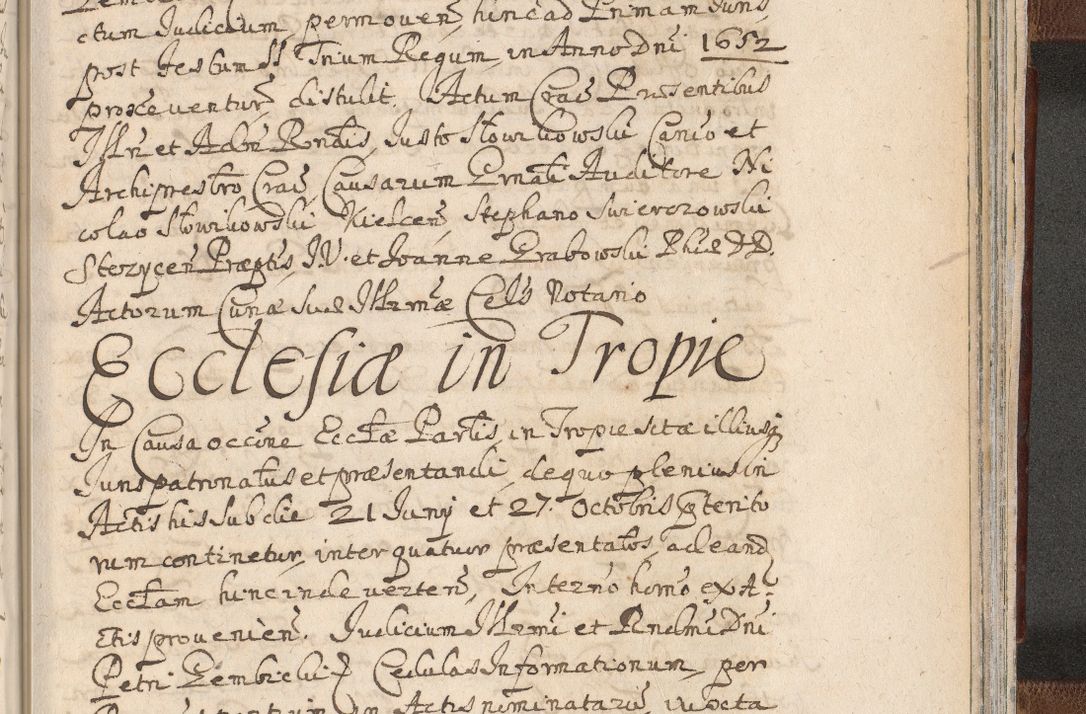 ctum Iudicium permoven̄ hinc ad Primam Iuris
post festum SS Trium Regum in Anno Dni 1652
proxe ventur̄ distulit. Actum Crac Præsentibus
Illr̄ et Adm̄ Rondis Iusto Słowikowski Canco et
Archipresbro Crac Causarum Grnali Auditore Ni
colao Słowikowski Kielcen̄ Stephano Swierczowski
Stezycen̄ Præptis I.V. et Ioanne Grabowski Phiæ D D.
Actorum Curiæ suæ Illrmæ Cels Notario
Ecclesiæ in Tropie
In Causa occne Eccłæ Parlis in Tropie sitæ illiusq
Iuris patronatus et præsentandi, de quo plenius in
Actis his sub die 21 Iunij et 27. Octobris præterito
rum continetur, inter quatuor præsentatos, ad eand
Ecctam hinc inde verten̄, Interno homo ex A-
ctis provenien̄. Iudicium Illrmi et Rndmi Dni
Petri Gembicki Cedulas Informationum per
in Actis nominatar̄ iuxta